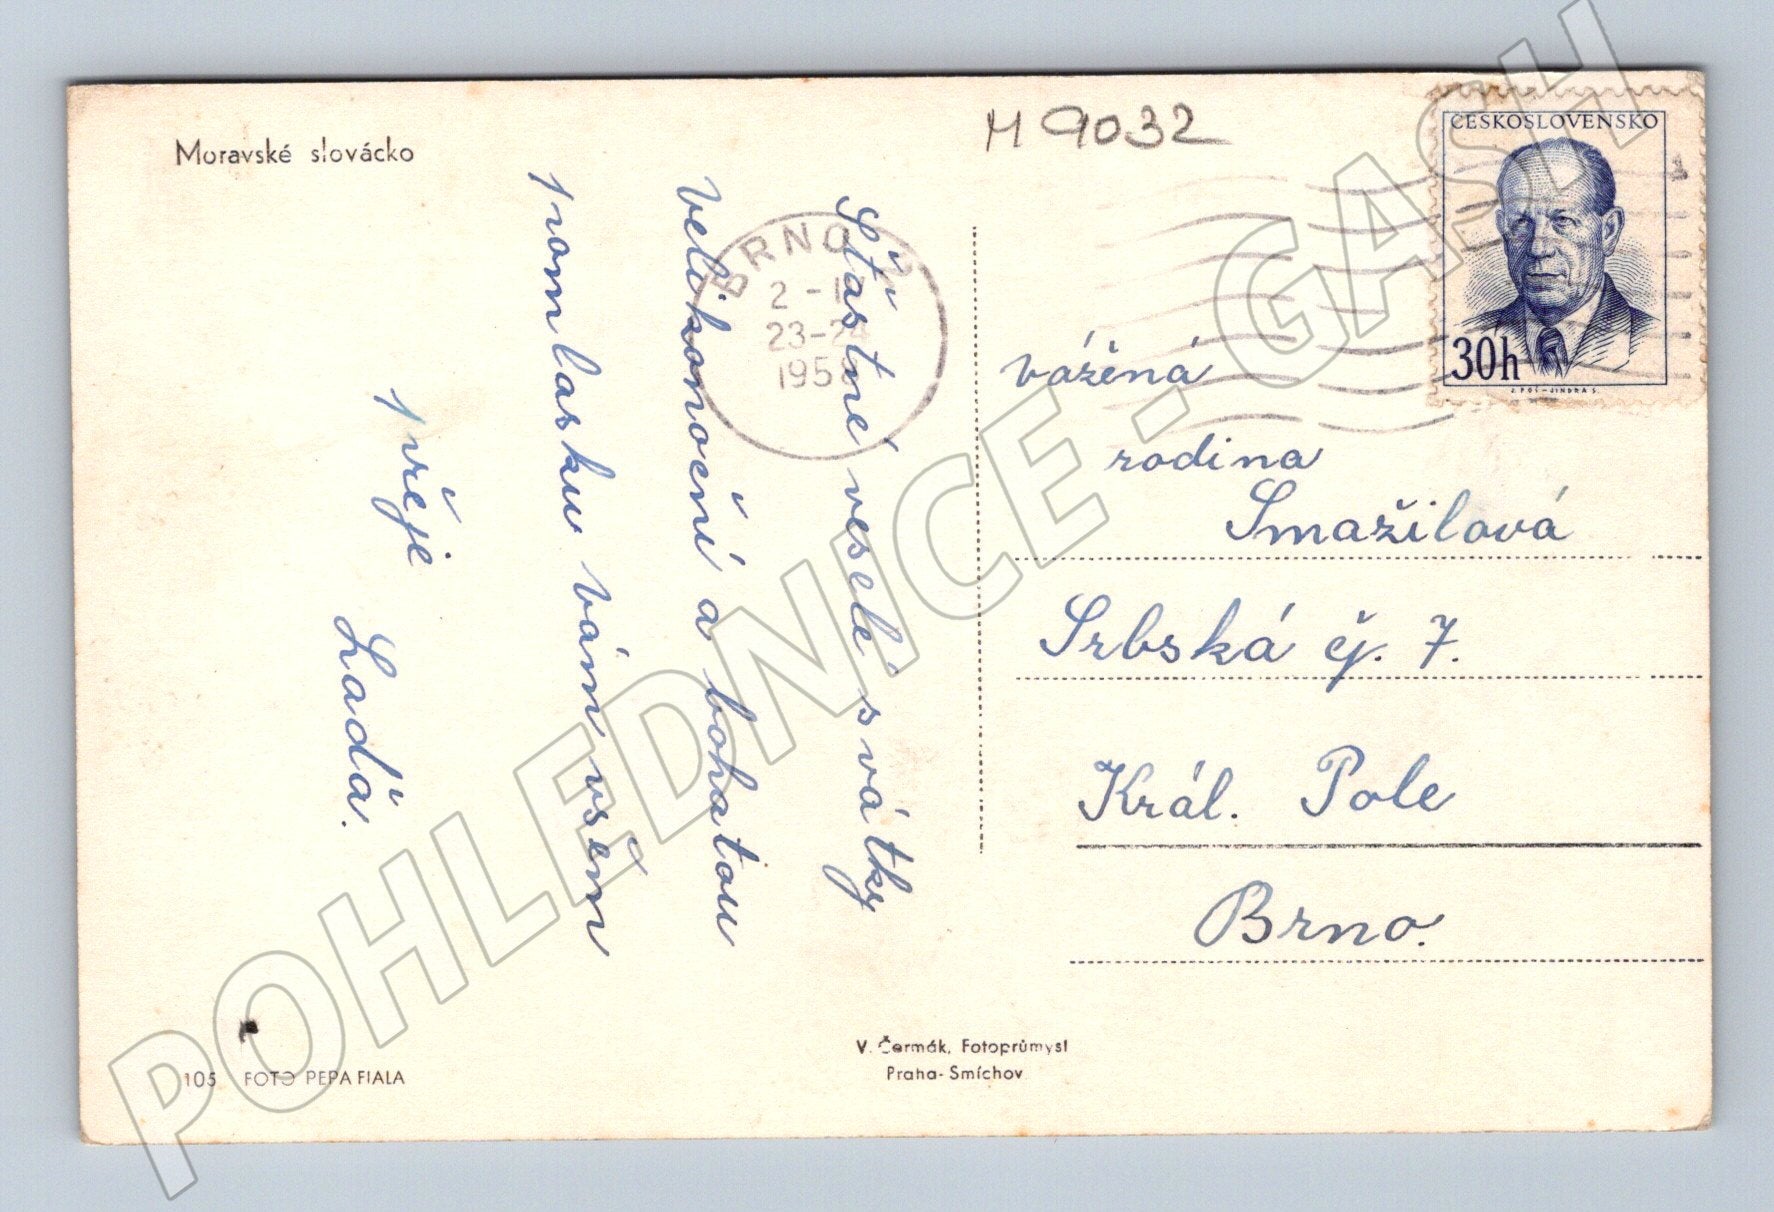 Moravské slovácko
M 9032
ČESKOSLOVENSKO
30h
J. POŠ-JINDRA S.
BRNO 2
23-24
Šťastné veselé svátky
velikonoční a bohatou
pomlasku vám všem
přeje
Laďa.
vážená
rodina
Smažilová
Srbská čj. 7.
Král. Pole
Brno.
V. Čermák, Fotoprůmysl
Praha-Smíchov
105 FOTO PEPA FIALA
POHLEDNICE - GASH